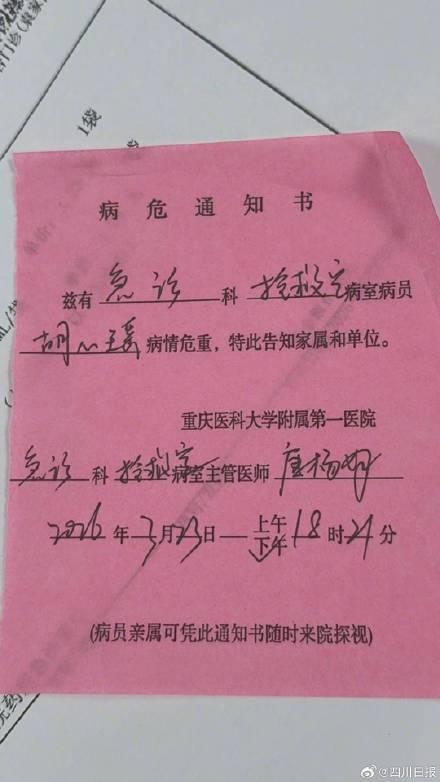 1袋
病危通知书
兹有 急诊 科 抢救室 病室病员
胡心瑶 病情危重，特此告知家属和单位。
重庆医科大学附属第一医院
急诊 科 抢救室 病室主管医师 唐杨
2026 年 3月23日 上午 下午 18 时 24 分
(病员亲属可凭此通知书随时来院探视)
@四川日报